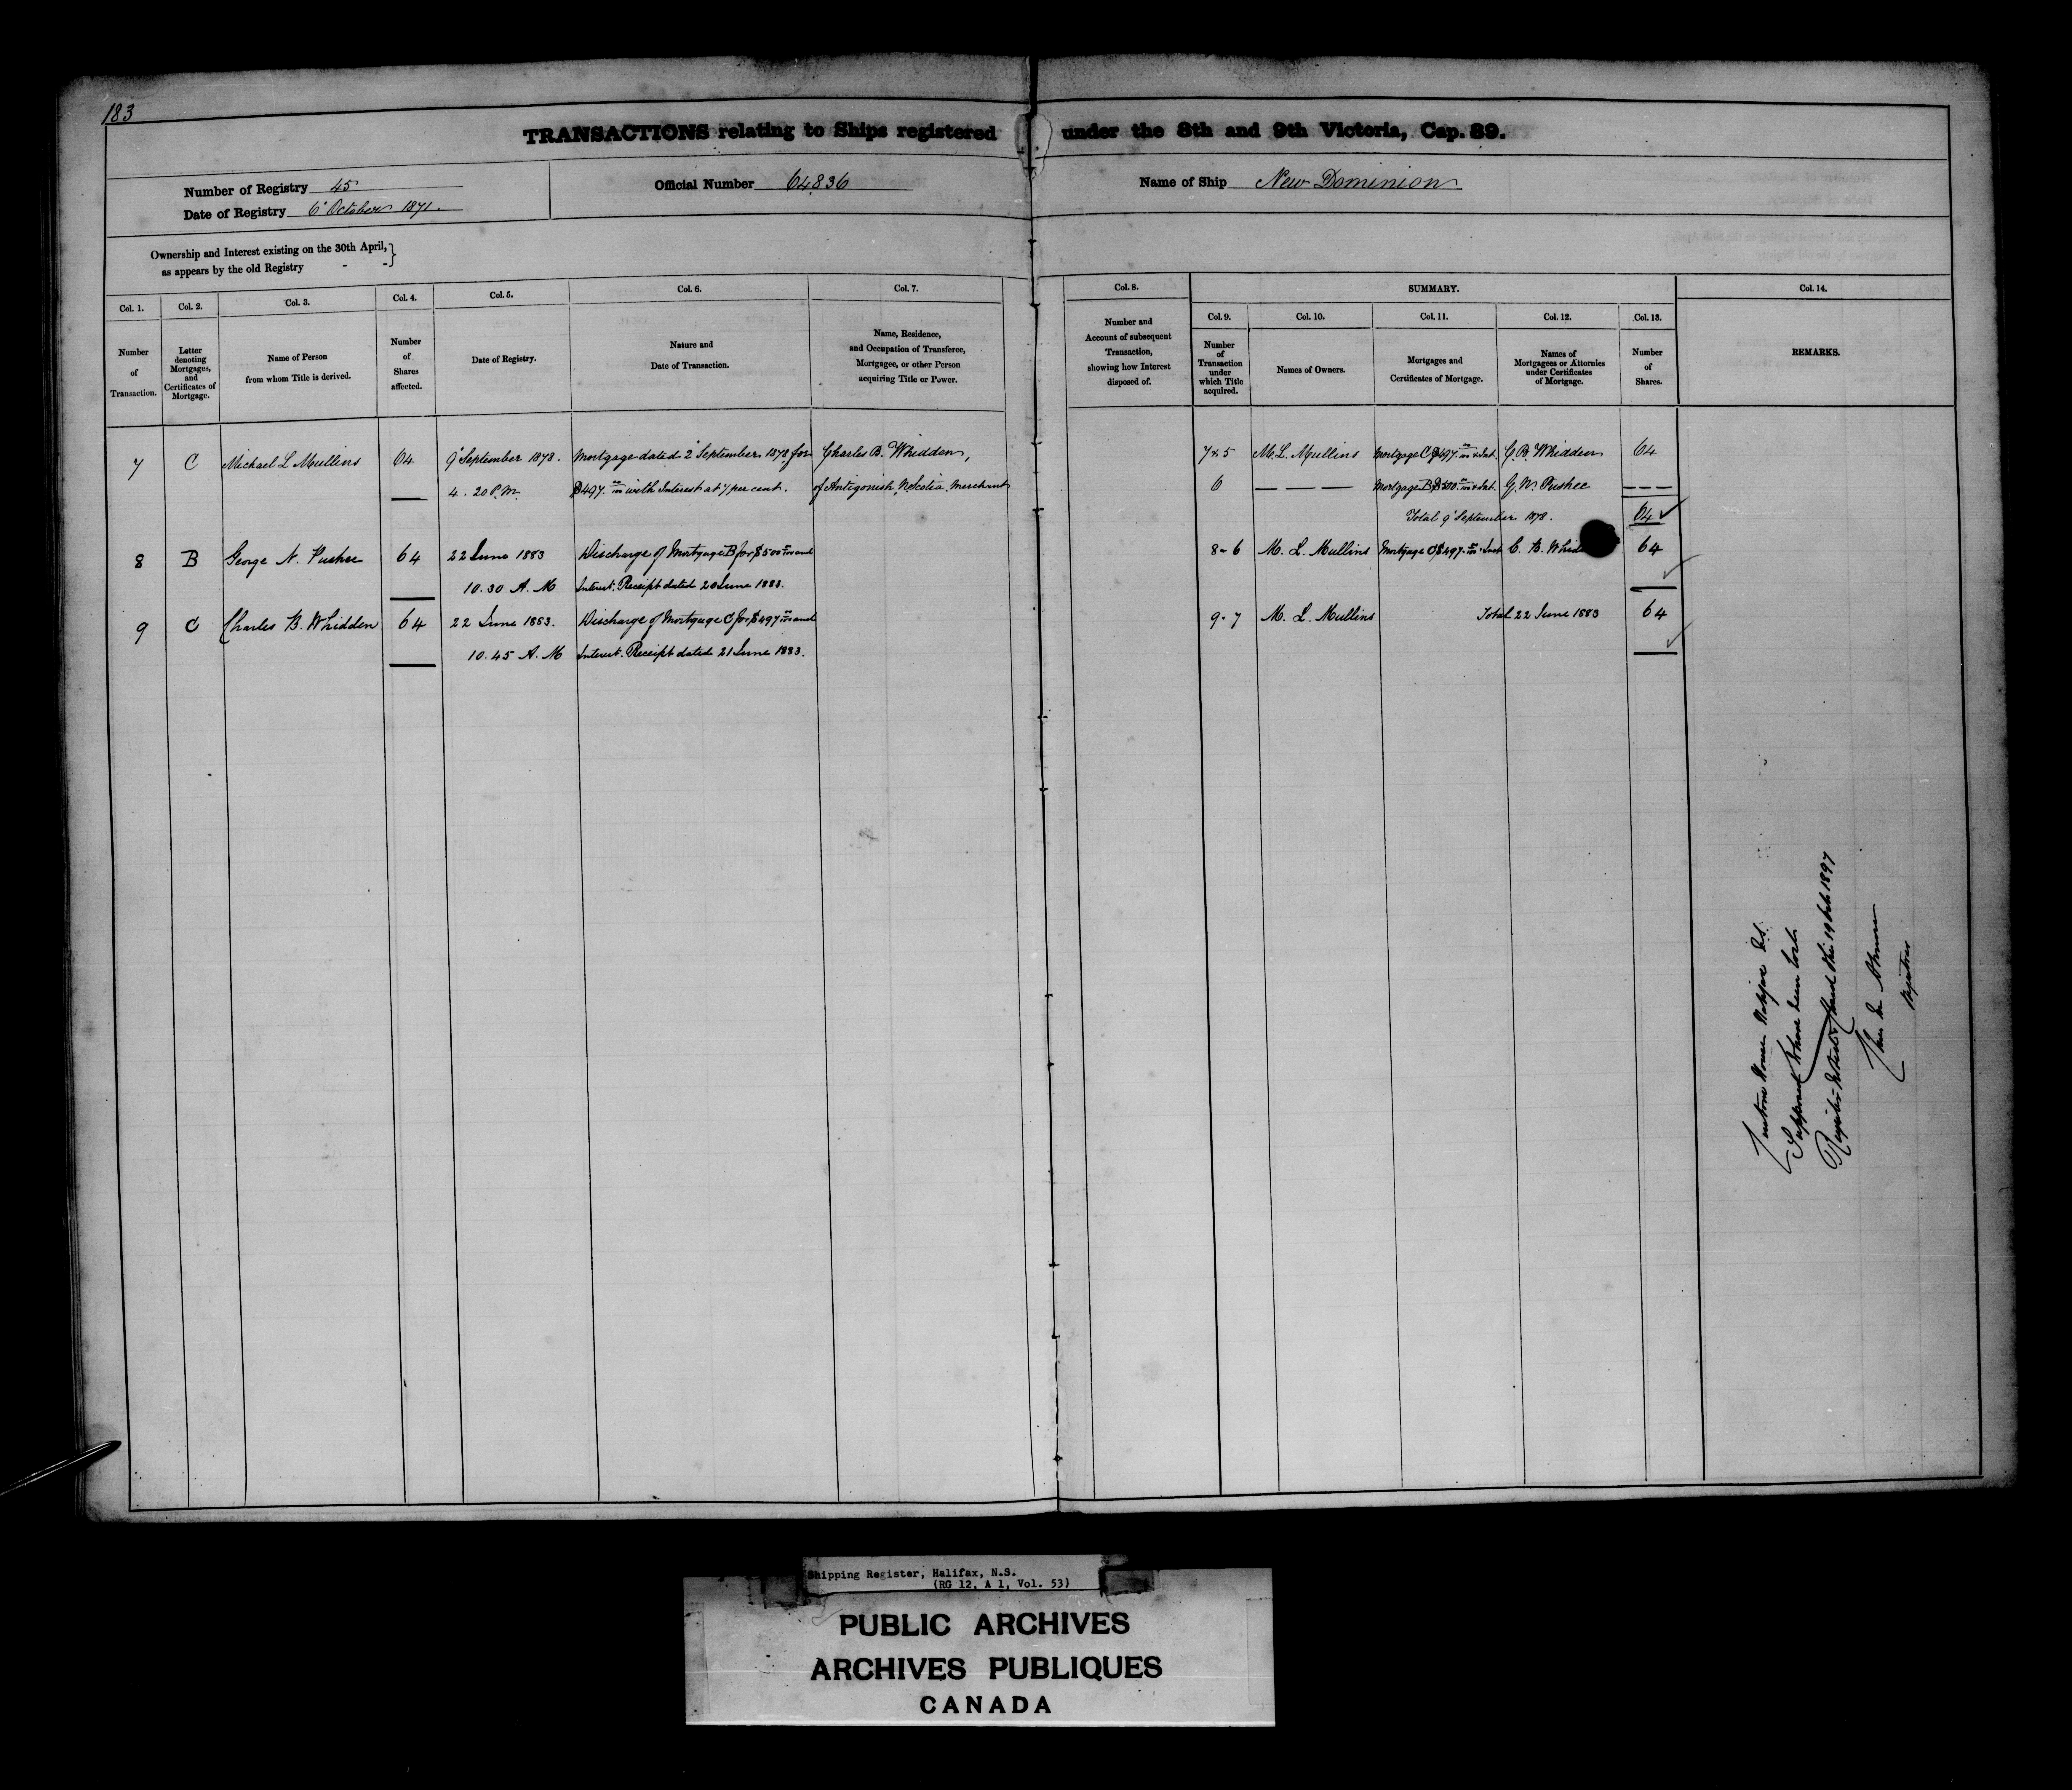 183
TRANSACTIONS relating to Ships registered under the 8th and 9th Victoria, Cap. 89.
Number of Registry 45
Date of Registry 6 October 1871.
Official Number 64836
Name of Ship New Dominion
Ownership and Interest existing on the 30th April,
as appears by the old Registry - -
Col. 1.
Number
of
Transaction.
Col. 2.
Letter
denoting
Mortgages,
and
Certificates of
Mortgage.
Col. 3.
Name of Person
from whom Title is derived.
Col. 4.
Number
of
Shares
affected.
Col. 5.
Date of Registry.
Col. 6.
Nature and
Date of Transaction.
Col. 7.
Name, Residence,
and Occupation of Transferee,
Mortgagee, or other Person
acquiring Title or Power.
Col. 8.
Number and
Account of subsequent
Transaction,
showing how Interest
disposed of.
SUMMARY.
Col. 9.
Number
of
Transaction
under
which Title
acquired.
Col. 10.
Names of Owners.
Col. 11.
Mortgages and
Certificates of Mortgage.
Col. 12.
Names of
Mortgagees or Attornies
under Certificates
of Mortgage.
Col. 13.
Number
of
Shares.
Col. 14.
REMARKS.
7 C Michael L Mullins 64 9 September 1878. Mortgage dated 2 September 1878 for Charles B. Whidden,
4. 20 P.M. $497. with Interest at 7 per cent. of Antigonish N. Scotia. Merchant
8 B George N. Pushee 64 22 June 1883 Discharge of Mortgage B for $500 and
10. 30 A. M Interest. Receipt dated 20 June 1883.
9 C Charles B. Whidden 64 22 June 1883. Discharge of Mortgage C for $497 and
10. 45 A. M Interest. Receipt dated 21 June 1883.
7 & 5 M. L. Mullins Mortgage C $497. & Int. C. B. Whidden 64
6 — — — — Mortgage B $500. & Int. G. N. Pushee — — —
Total 9 September 1878. 64
8 - 6 M. L. Mullins Mortgage C $497. & Int C. B. 64
9 - 7 M. L. Mullins Total 22 June 1883 64
Customs House Halifax N.S.
Supposed to have been lost
Register closed this 19 Feb 1897
Registrar
Shipping Register, Halifax, N.S.
(RG 12, A 1, Vol. 53)
PUBLIC ARCHIVES
ARCHIVES PUBLIQUES
CANADA